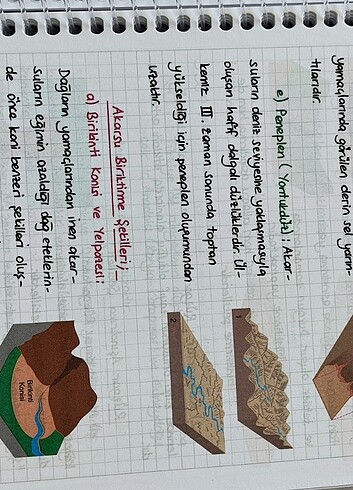 yamaçlarında görülen derin sel yarın-
tılarıdır.
e) Peneplen (Yontukdüz): Akar-
suların deniz seviyesine yaklaşmasıyla
oluşan hafif dalgalı düzlüklerdir. Ül-
kemiz III. zaman sonunda toptan
yükseldiği için peneplen oluşumundan
uzaktır.
1
2
Akarsu Biriktirme Şekilleri;
a) Birikinti Konisi ve Yelpazesi:
Dağların yamaçlarından inen akar-
suların eğimin azaldığı dağ eteklerin-
de önce koni benzeri şekilleri oluş-
Birikinti
Konisi